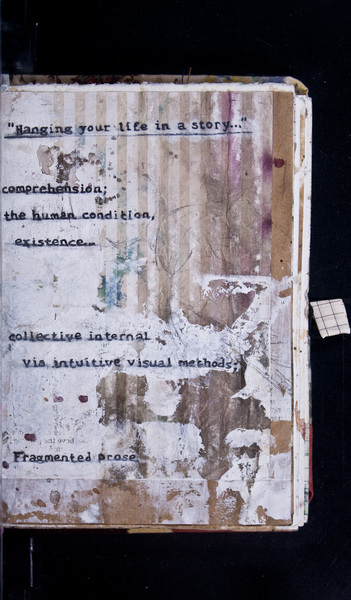 "Hanging your life in a story..."
comprehension;
the human condition,
existence...
collective internal
via intuitive visual methods;
Fragmented prose